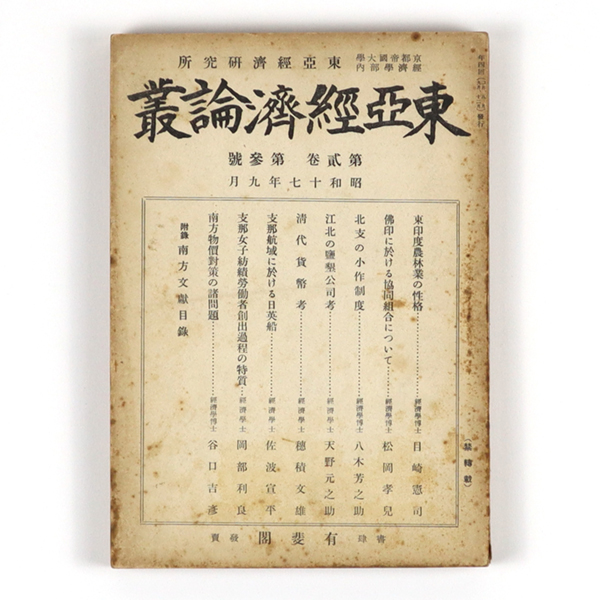 京都帝國大學
經濟學部內
東亞經濟研究所
東亞經濟論叢
第貳卷 第參號
昭和十七年九月
東印度農林業の性格…………經濟學博士 目崎憲司
佛印に於ける協同組合について…………經濟學博士 松岡孝兒
北支の小作制度…………經濟學博士 八木芳之助
江北の鹽墾公司考…………經濟學士 天野元之助
清代貨幣考…………經濟學士 穗積文雄
支那航域に於ける日英船…………經濟學士 佐波宣平
支那女子紡績勞働者創出過程の特質…………經濟學士 岡部利良
南方物價對策の諸問題…………經濟學博士 谷口吉彥
附錄 南方文獻目錄
(禁轉載)
書肆 有斐閣 發賣